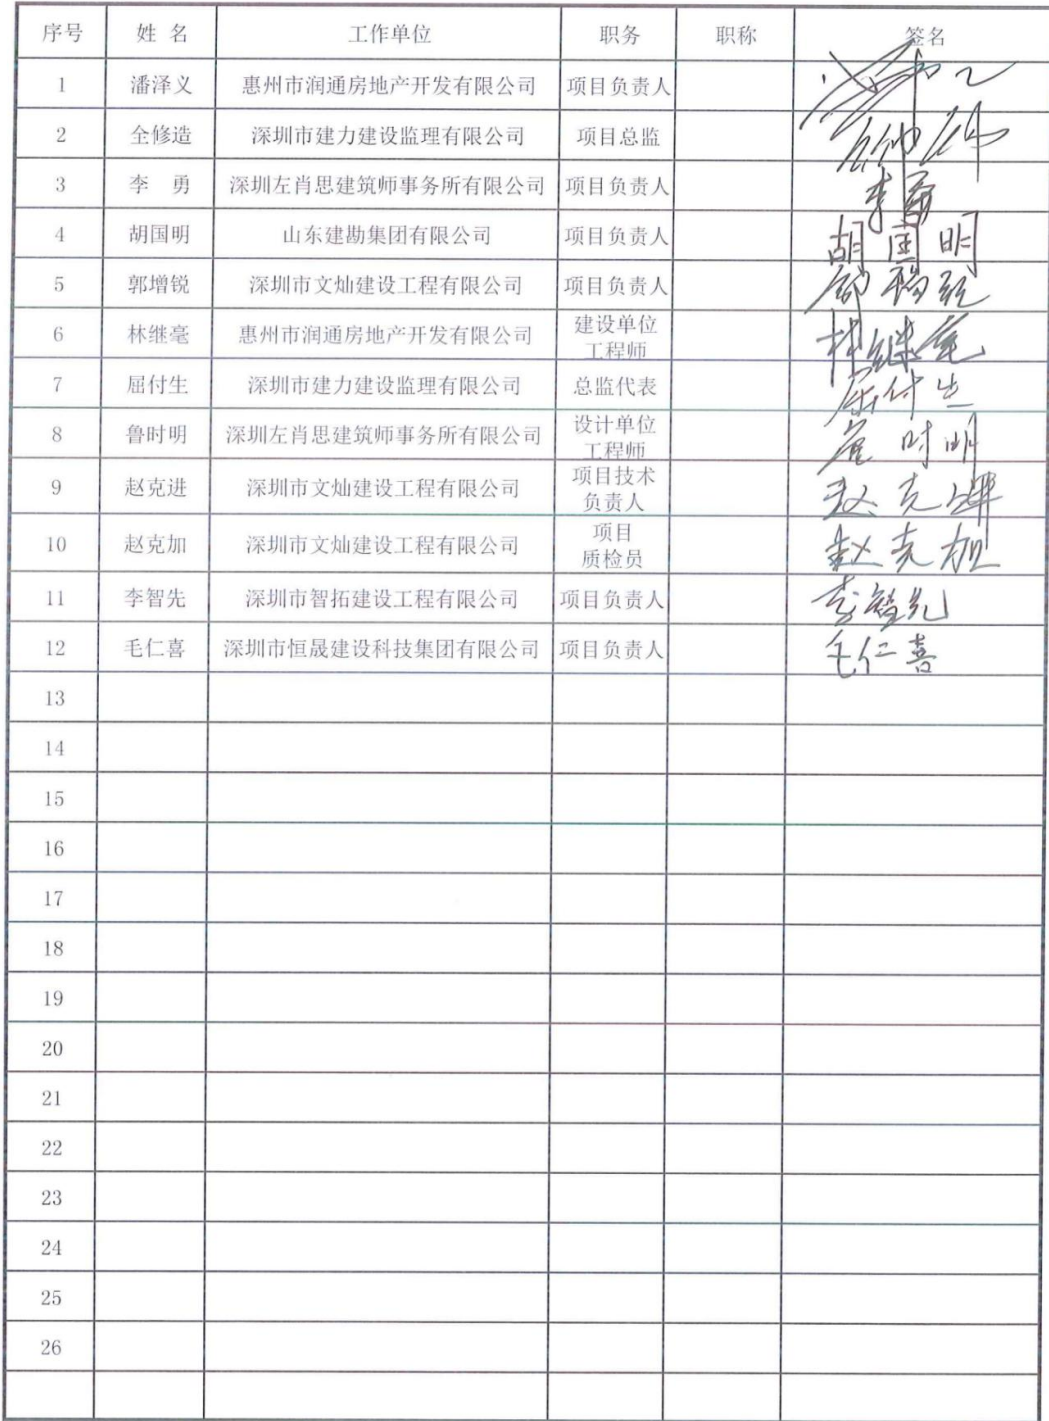 序号 姓 名 工作单位 职务 职称 签名
1 潘泽义 惠州市润通房地产开发有限公司 项目负责人
2 全修造 深圳市建力建设监理有限公司 项目总监
3 李 勇 深圳左肖思建筑师事务所有限公司 项目负责人 李勇
4 胡国明 山东建勘集团有限公司 项目负责人 胡国明
5 郭增锐 深圳市文灿建设工程有限公司 项目负责人
6 林继毫 惠州市润通房地产开发有限公司 建设单位
工程师 林继毫
7 屈付生 深圳市建力建设监理有限公司 总监代表 屈付生
8 鲁时明 深圳左肖思建筑师事务所有限公司 设计单位
工程师 时明
9 赵克进 深圳市文灿建设工程有限公司 项目技术
负责人 赵克进
10 赵克加 深圳市文灿建设工程有限公司 项目
质检员 赵克加
11 李智先 深圳市智拓建设工程有限公司 项目负责人 李智先
12 毛仁喜 深圳市恒晟建设科技集团有限公司 项目负责人 毛仁喜
13
14
15
16
17
18
19
20
21
22
23
24
25
26